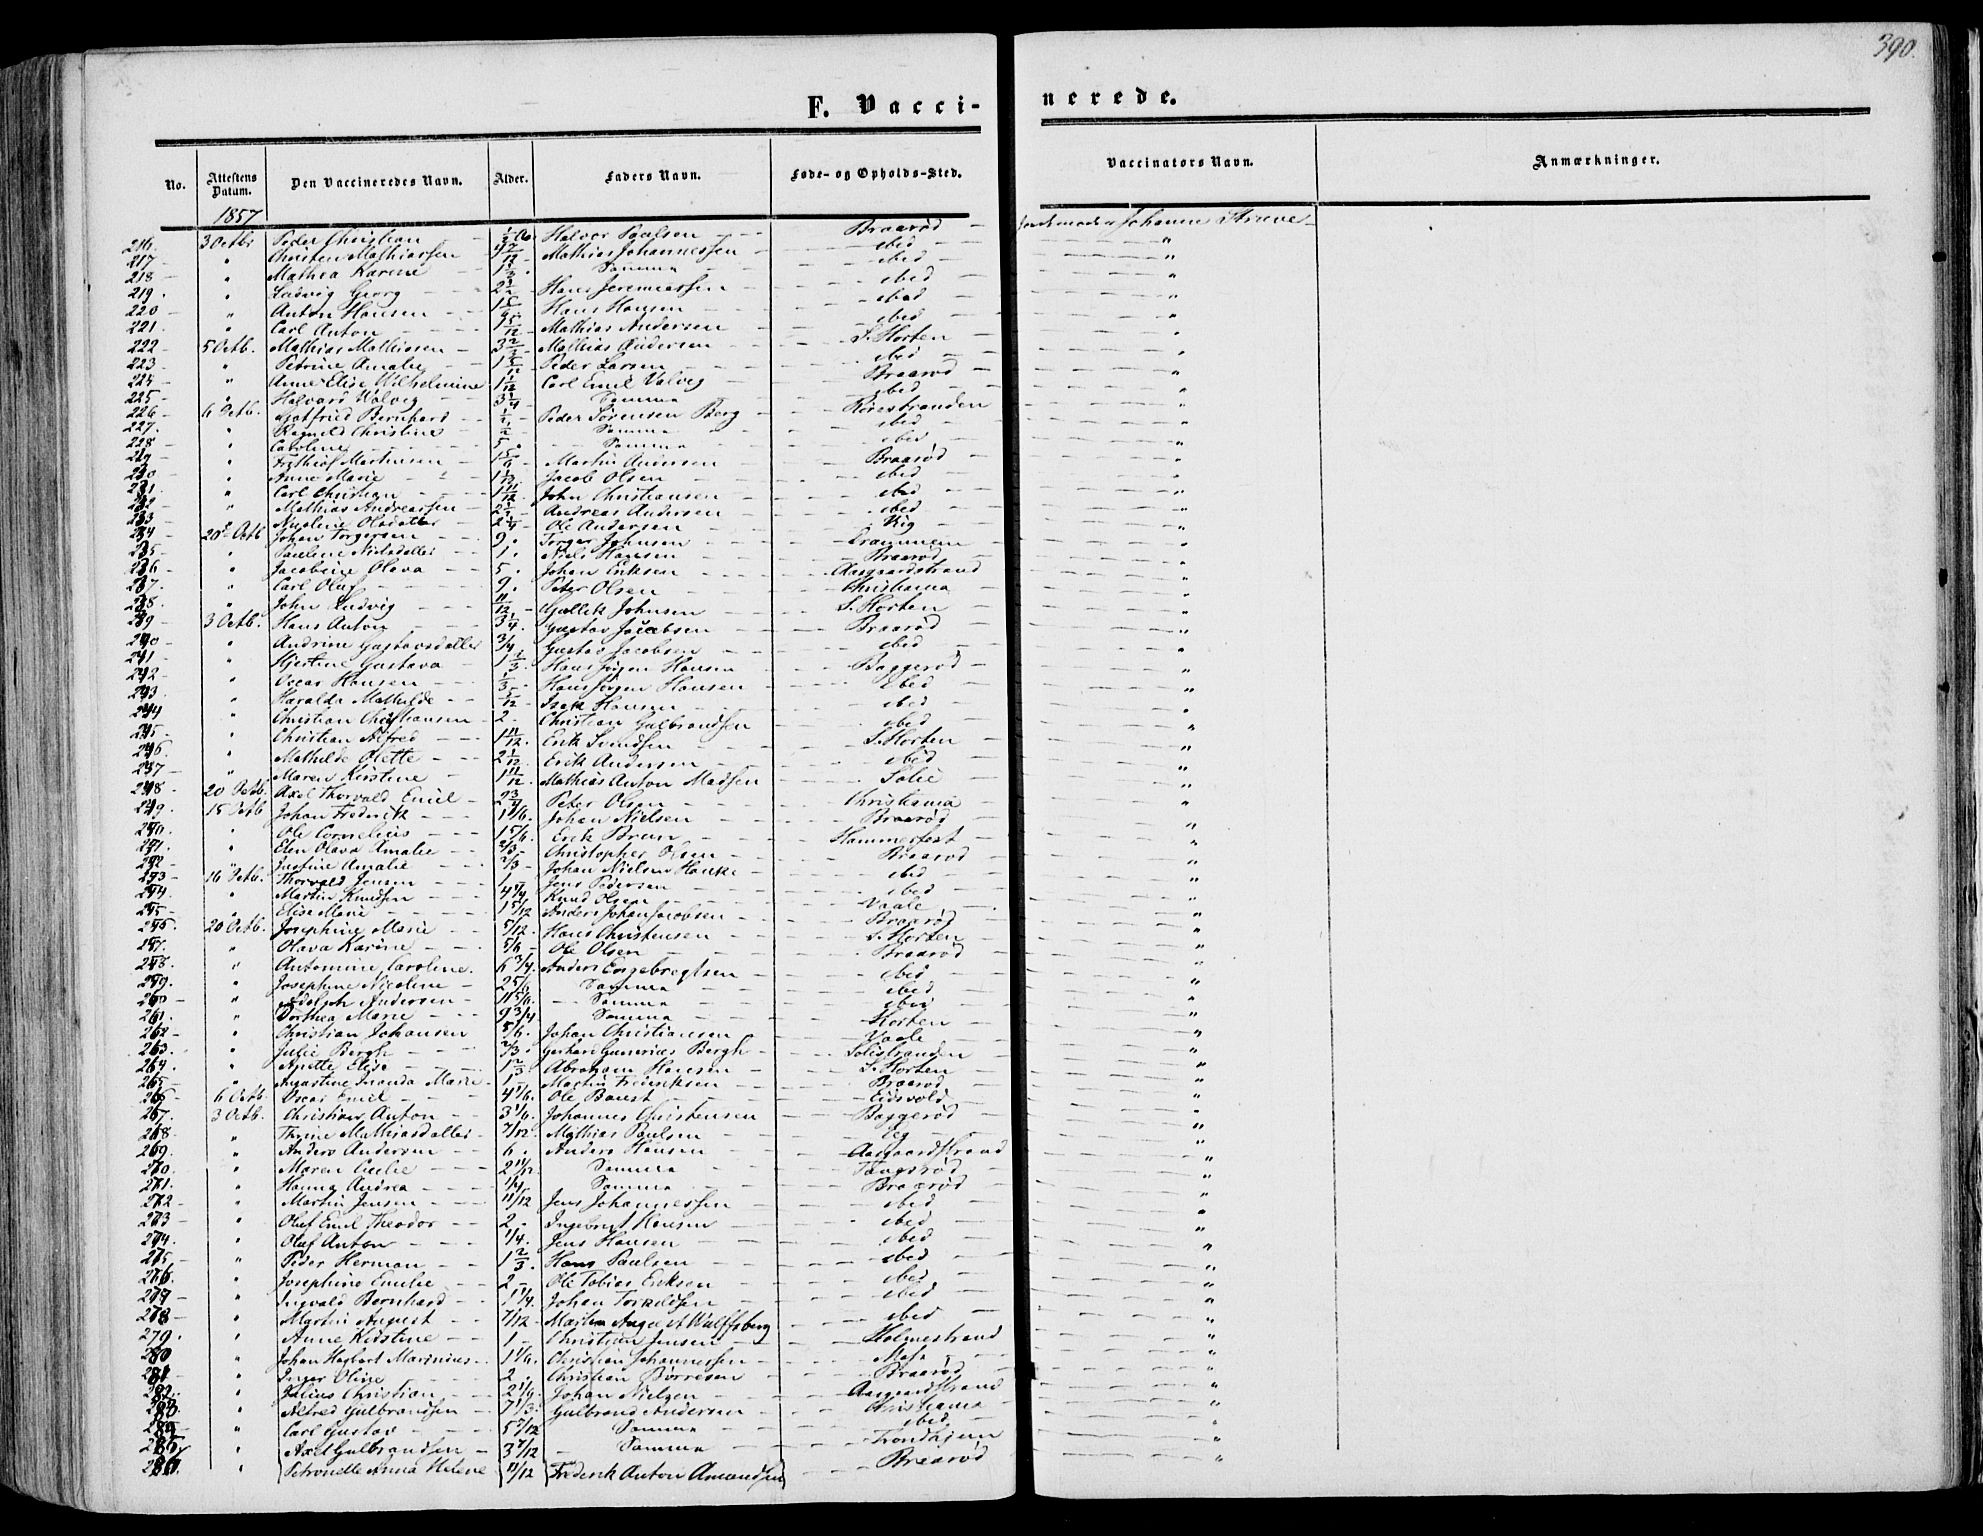 390.
F. Vacci-
nerede.
No. Attestens Datum. Den Vaccineredes Navn. Alder. Faders Navn. Føde- og Opholds-Sted. Vaccinators Navn. Anmærkninger.
1857
216. 3 Octbr Peder Christian Halvor Paulsen Braarød Johanne
217 " Christen Mathiassen Mathias Johannessen ibid "
218 " Mathea Karine Samme ibid "
219. " Ludvig Georg Hans Jeremiassen ibid "
220 " Anton Hansen Hans Hansen ibid "
221. " Carl Anton 1 5/12 Mathias Andersen ibid "
222 5 Octb. Mathias Mathiesen Mathias Andersen S. Horten "
223 " Petrine Amalie 1 Peder Larsen ibid "
224 " Anne Elise Wilhelmine 1 1/12 Carl Emil Valvig Braarød "
225 " Halvard Valvig 3 1/4 Samme ibid "
226 6 Octb. Gotfried Bernhard 1/2 Peder Sørensen Berg Rørestranden "
227. " Ragnild Christine 1/2 Samme ibid "
228 " Caroline 5 Samme ibid "
229 " Frithiof Martinsen 1 5/6 Martin Andersen Braarød "
230 " Anne Marie Jacob Olsen ibid "
231. " Carl Christian 1 11/12 John Christiansen ibid "
232 " Mathias Andreassen 2 Andreas Andersen ibid "
233 " Nicoline Olsdatter 2 1/4 Ole Andersen Vig "
234 20 Octb Johan Torgersen 9 Torger Johnsen "
235 " Pauline Nilsdatter 1 Niels Hansen Braarød "
236 " Jacobine Olava 5 Johan Eriksen Aasgaardstrand "
237. " Carl Oluf 9 Peter Olsen Christiania "
238. " John Ludvig 11/12 Gullik Johnsen S. Horten "
239 3 Octb. Hans Anton 3 1/4 Gustav Jacobsen Braarød "
240 " Andrine Gustavsdatter 3/4 Gustav Jacobsen ibid "
241 " Hjertine Gustava 1 1/3 Hans Jørgen Hansen Baggerød "
242 " Oscar Hansen 1/3 Hans Jørgen Hansen ibid "
243. " Haralda Mathilde Isak Hansen ibid "
244 " Christian Christiansen 2 Christian Gulbrandsen ibid "
245 " Christian Alfred 1 11/12 Erik Svendsen S. Horten "
246 " Mathilde Olette 2 1/12 Erik Andersen ibid "
247 " Maren Kirstine 1 11/12 Mathias Anton Madsen Solie "
248 20 Octb. Axel Thorvald Emil 2 3/4 Peter Olsen Christiania "
249. 15 Octb Johan Frederik 1 1/6 Johan Nielsen Braarød "
250. " Ole Cornelius 1 5/6 Erik Brun Hammerfest "
251. " Elen Olava Amalie 2/3 Christopher Olsen Braarød "
252 " Justine Amalie 2/3 Johan Nielsen ibid "
253 16 Octb. Thorvald Jensen 1 Jens Pedersen ibid "
254. " Martin Knudsen 4 Knud Olsen Vaale "
255 " Elise Marie 1 5/12 Anders Johan Jacobsen Braarød "
256. 20 Octb. Josephine Marie 5/12 Hans Christensen S. Horten "
257. " Olava Karine 5/6 Ole Olsen Braarød "
258. " Antomine Caroline. 6 3/4 Anders Engebregtsen ibid "
259. " Josephine Nicoline 2 5/6 Samme ibid "
260 " Adolph Andersen 4 5/6 Samme ibid "
261. " Dorthea Marie 9 3/4 Samme Horten "
262 " Christian Johansen 5/6 Johan Christiansen Vaale "
263. " Julie Bergh 2/3 Gerhard Gunerius Bergh Solistranden "
264. " Anette Elise 1 2/3 Abraham Hansen S. Horten "
265 " Augustine Inanda Marie 1 Martin Fredriksen Braarød "
266 6 Octb. Oscar Emil 4 1/6 Ole Baust Eidsvold "
267. 3 Octb. Christian Anton 3 1/6 Johannes Christensen Baggerød "
268 " Thrine Mathiasdatter 7/12 Mathias Paulsen Eeg "
269. " Anders Andersen 6 Anders Hansen Aasgaardstrand "
270. " Maren Cecilie 2 11/12 Samme "
271. " Hanna Andrea 1/4 Samme Braarød "
272 " Martin Jensen 11/12 Jens Johannessen ibid "
273 " Oluf Emil Theodor 2 Ingebret Hansen ibid "
274. " Oluf Anton 1/4 Jens Hansen ibid "
275 " Peder Herman 1 2/3 Hans Paulsen ibid "
276. " Josephine Emilie 2 Ole Tobias Eriksen ibid "
277 " Ingvald Bernhard 1 1/4 Johan Torkildsen ibid "
278 " Martin August 7/12 Martin August Wulffsberg ibid "
279. " Anne Kirstine 1 Christian Jensen Holmestrand "
280 " Johan Hagbart Marinius 1 1/6 Christian Johannessen "
281 " Inger Oline 2 Christian Børresen Braarød "
282 " Julius Christian 2 1/6 Johan Nielsen Aasgaardstrand "
283 " Alfred Gulbrandsen 7 1/3 Gulbrand Andersen Christiania "
284 " Carl Gustav 5 7/12 Samme ibid "
285 " Axel Gulbrandsen 3 7/12 Samme Trondhjem "
286 " Petronelle Anna Helene 11/12 Frederik Anton Amundsen Braarød "